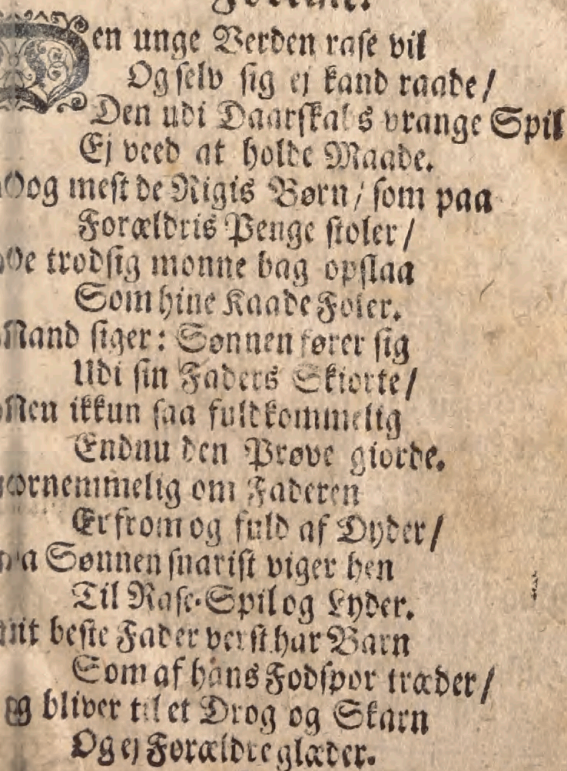 Den unge Verden rase vil
Og selv sig ej kand raade/
Den udi Daarskabs vrange Spil
Ej veed at holde Maade.
Og mest de Rigis Børn/ som paa
Forældris Penge stoler/
De trodsig monne bag opslaa
Som hine Kaade Foler.
Mand siger: Sønnen fører sig
Udi sin Faders Skiorte/
ikkun saa fuldkommelig
Endnu den Prøve giorde.
Fornemmelig om Faderen
Er from og fuld af Dyder/
Sønnen snarist viger hen
Til Rase-Spil og Lyder.
beste Fader verst har Barn
Som af hans Fodspor træder/
Og bliver til et Drog og Skarn
Og ej Forældre glæder.